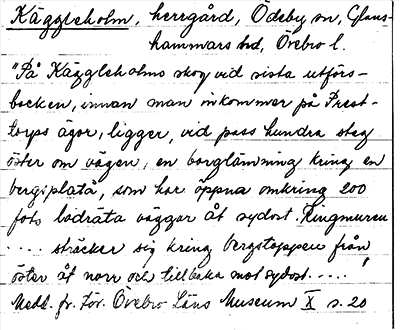 Käggleholm, herrgård, Ödeby sn, Glans-
hammars hd, Örebro l.
"På Käggleholms skog vid sista utförs-
backen, innan man inkommer på Prest-
torps ägor, ligger, vid pass hundra steg
öster om vägen, en borglämning kring en
bergsplatå, som har öppna omkring 200
fots lodräta väggar åt sydost. Ringmuren
.... sträcker sig kring bergstoppen från
öster åt norr och tillbaka mot sydost....."
Medd. fr. För. Örebro Läns Museum X s. 20